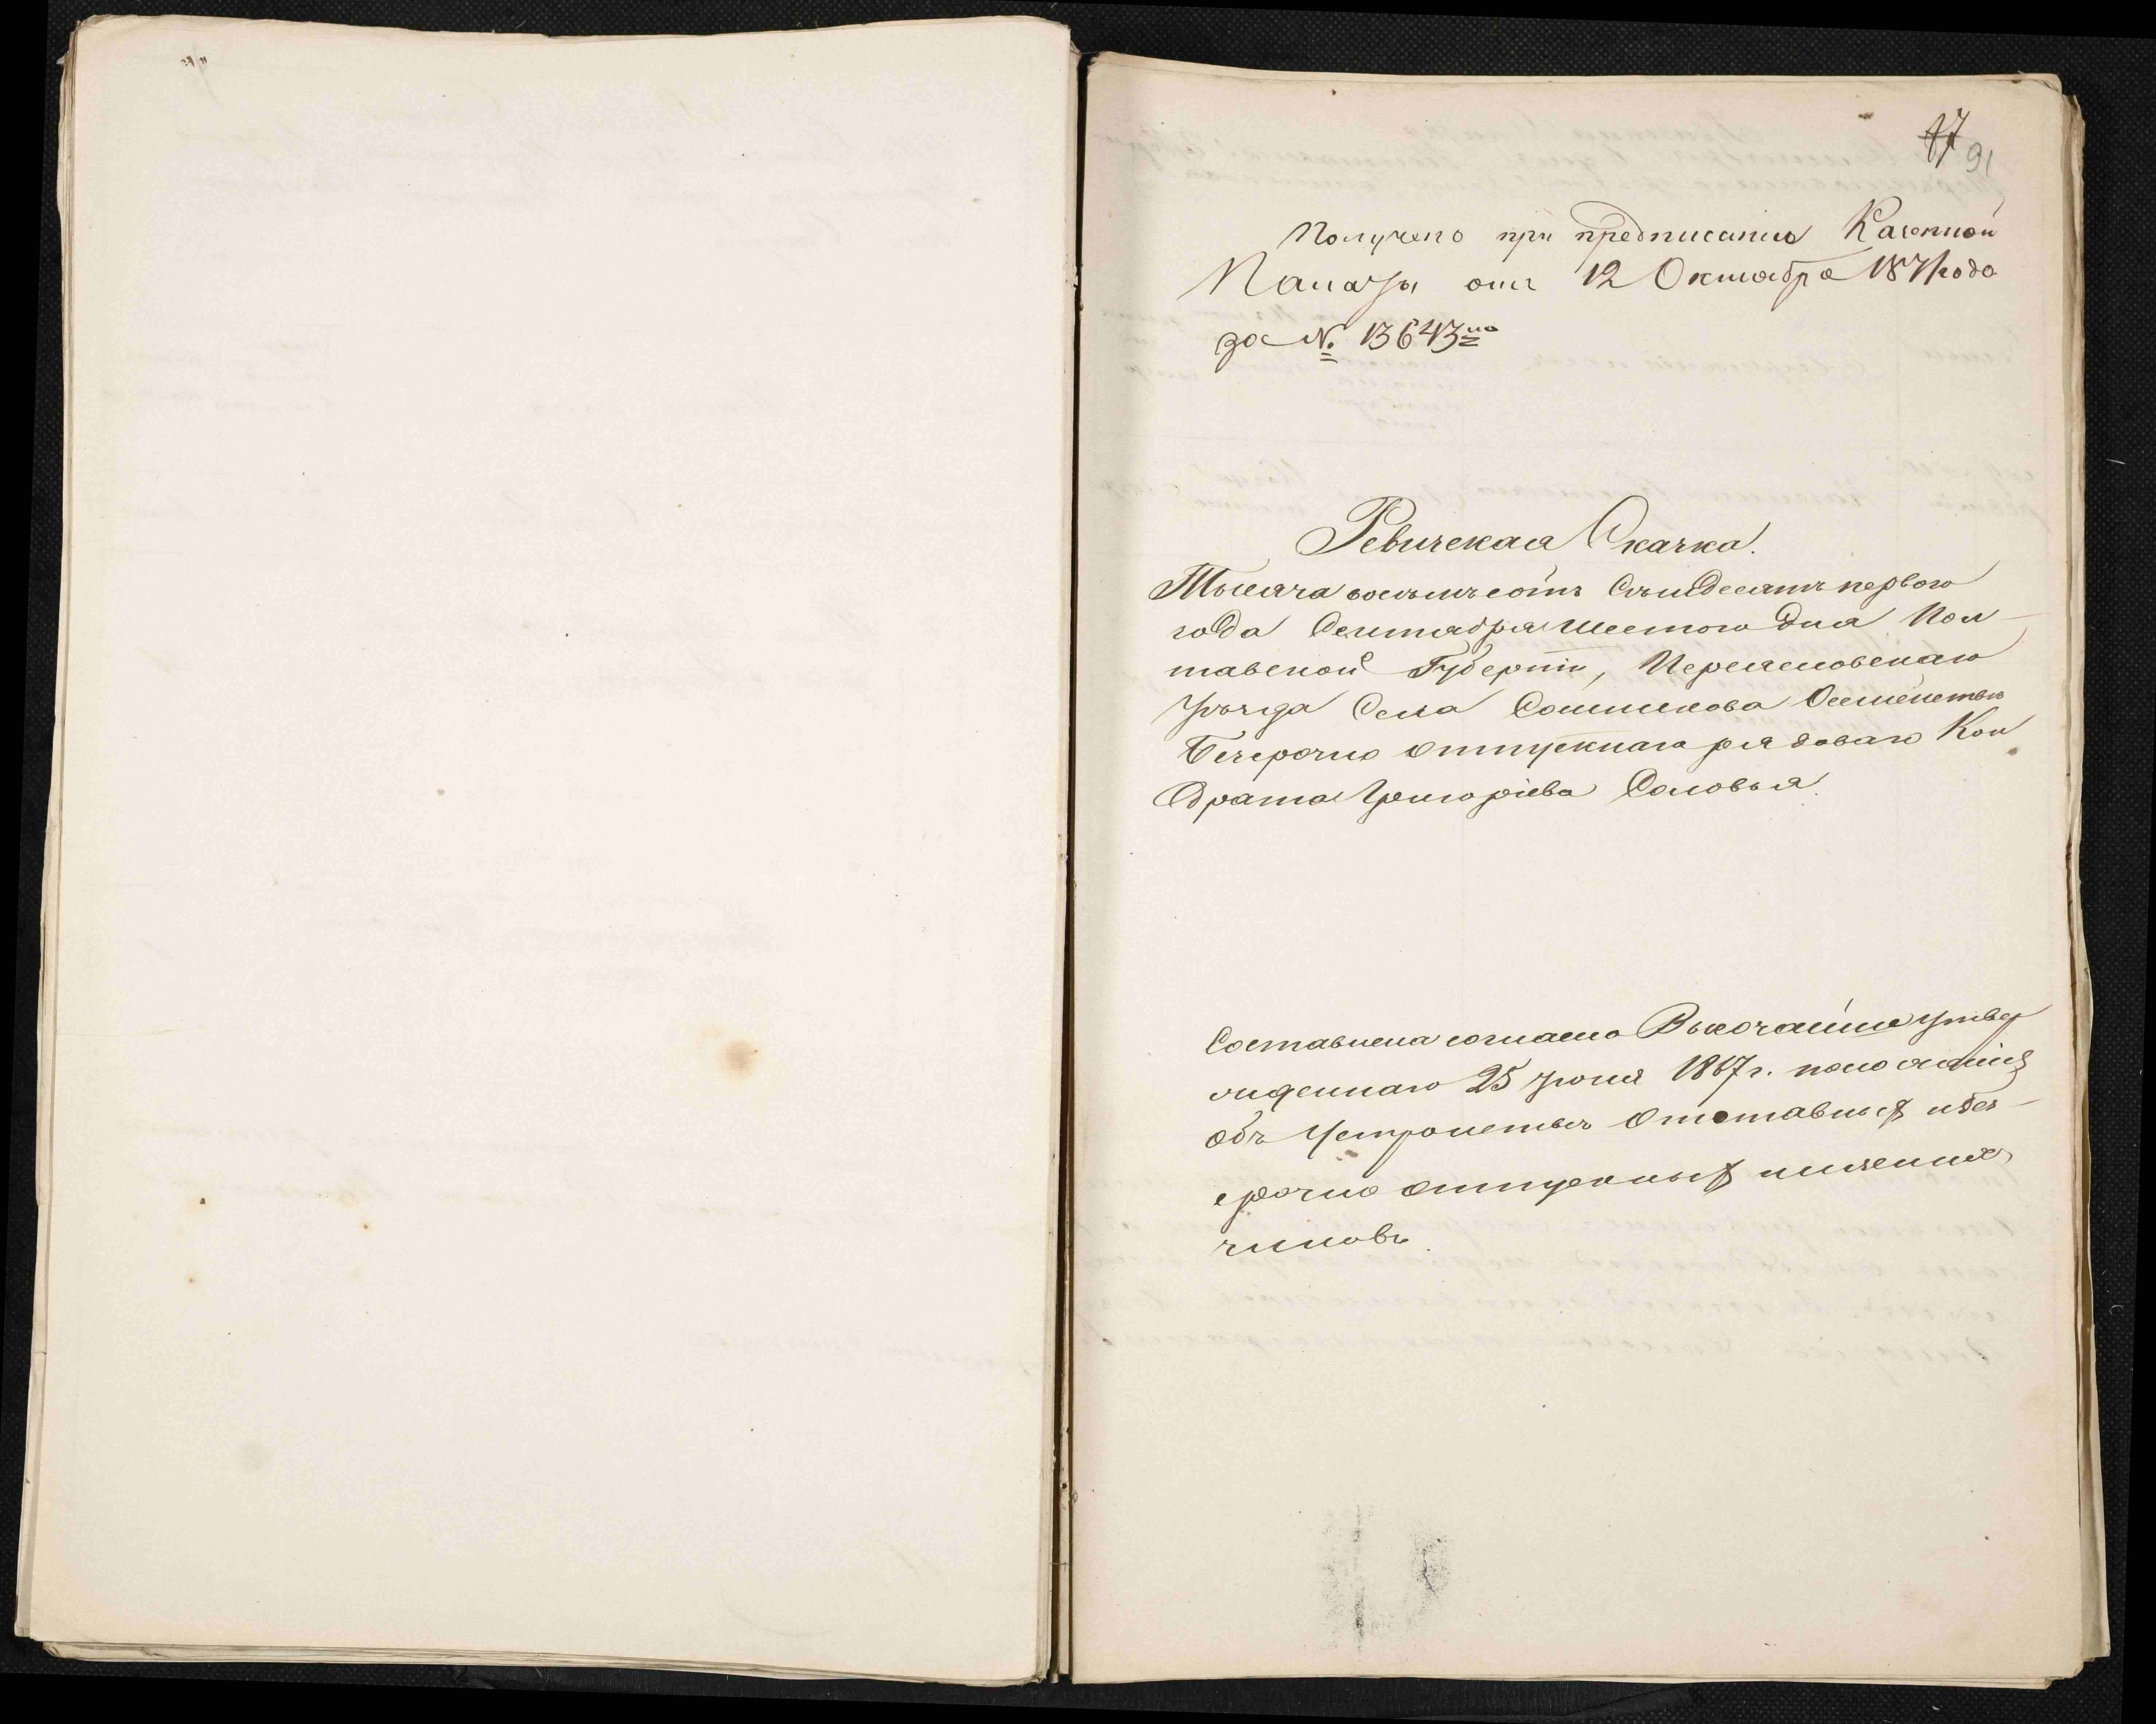 87
91
Получено при предписаніи Казенной
Палаты отъ 12 Октября 1871 года
за №. 13643 мъ
Ревизская Сказка.
Тысяча восемьсотъ Семьдесятъ первого
года Сентября Шестого дня Пол-
тавской Губерніи, Переясловскаго
Уѣзда Села Сошникова О семействѣ
Безсрочно отпускнаго рядоваго Кон
драта Григоріева Соловья.
Составлена согласно Высочайше утвер
жденнаго 25 Іюня 1867 г. положенія
объ Устройствѣ Отставныхъ и без-
срочно отпускныхъ нижнихъ
чиновъ.